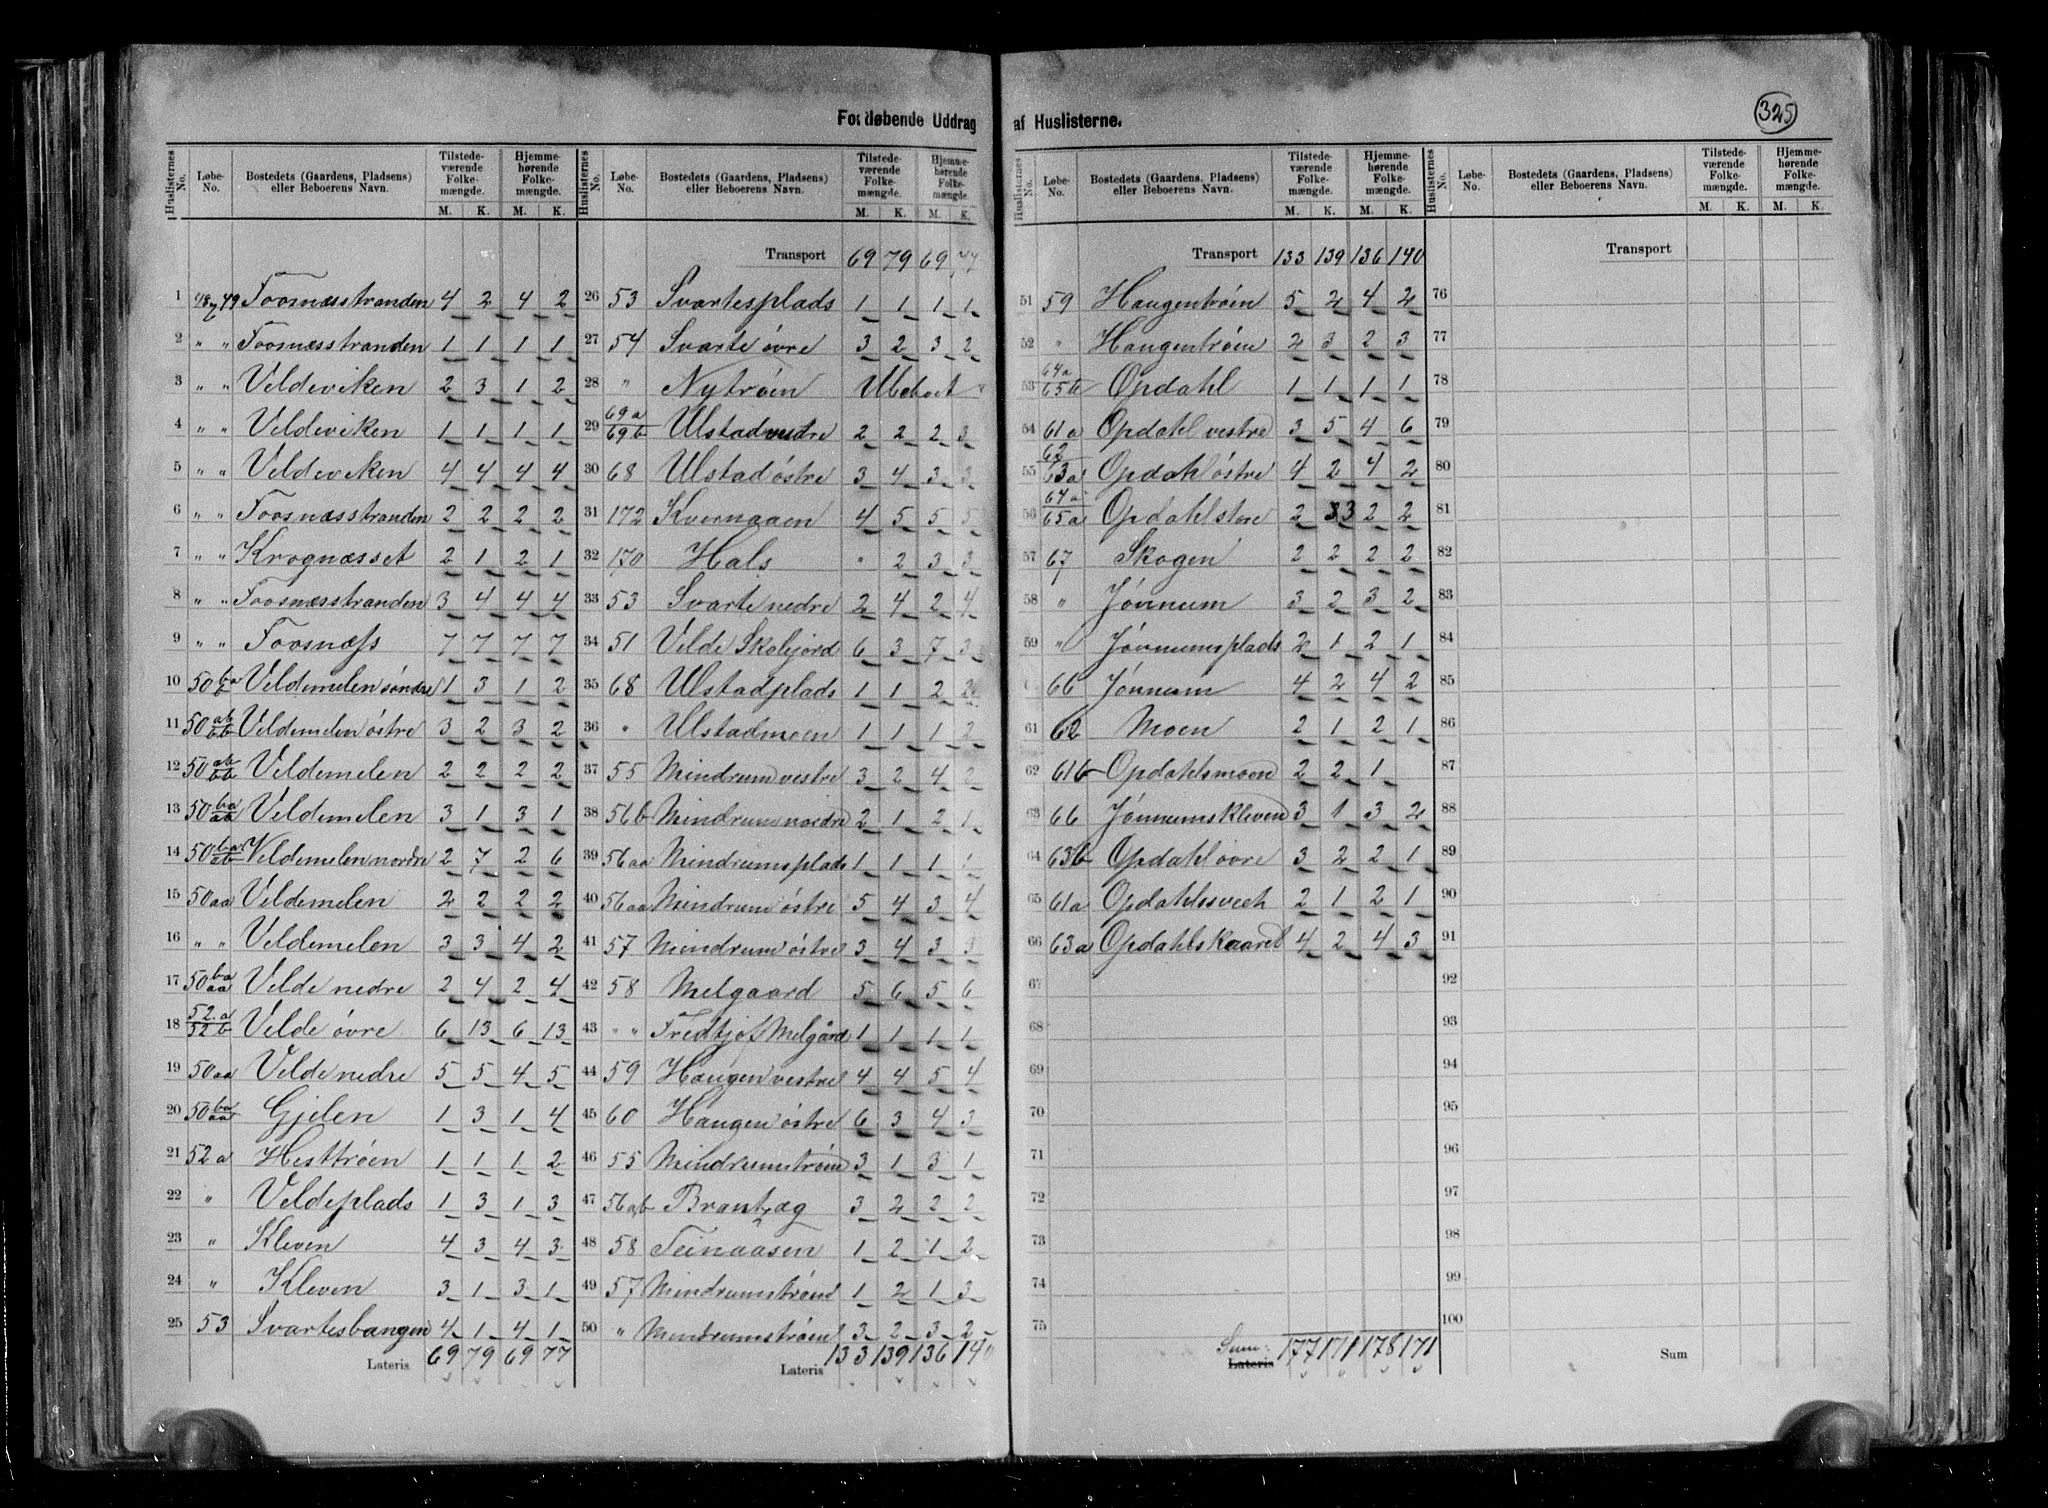 325
Fortløbende Uddrag af Huslisterne.
Huslisternes No. | Løbe-No. | Bostedets (Gaardens, Pladsens) eller Beboerens Navn. | Tilstedeværende Folkemængde. M. K. | Hjemmehørende Folkemængde. M. K.
1 48, 49 Foosnæsstranden 4 2 4 2
2 " " Foosnæsstranden 1 1 1 1
3 " " Veldeviken 2 3 1 2
4 " " Veldeviken 1 1 1 1
5 " " Veldeviken 4 4 4 4
6 " " Foosnæsstranden 2 2 2 2
7 " " Krognæsset 2 1 2 1
8 " " Foosnæsstranden 3 4 4 4
9 " " Foosnæss 7 7 7 7
10 50 Veldemelen söndre 1 3 1 2
11 50 ab/bb Veldemelen östre 3 2 3 2
12 50 ab/bb Veldemelen 2 2 2 2
13 50 ba/ab Veldemelen 3 1 3 1
14 50 ba/ab Veldemelen nordre 2 7 2 6
15 50 aa Veldemelen 2 2 2 2
16 " " Veldemelen 3 3 4 2
17 50 ba/aa Velde nedre 2 4 2 4
18 52.a/52 b Velde övre 6 13 6 13
19 50 aa Velde nedre 5 5 4 5
20 50 ba/aa Gjelen 1 3 1 4
21 52 a Hesttröen 1 1 1 2
22 " Veldeplads 1 3 1 3
23 " Kleven 4 3 4 3
24 " Kleven 3 1 3 1
25 53 Svartesbangen 4 1 4 1
Lateris 69 79 69 77
Huslisternes No. | Løbe-No. | Bostedets (Gaardens, Pladsens) eller Beboerens Navn. | Tilstedeværende Folkemængde. M. K. | Hjemmehørende Folkemængde. M. K.
Transport 69 79 69 77
26 53 Svartesplads 1 1 1 1
27 54 Svarte övre 3 2 3 2
28 " Nytröen Ubeboet "
29 69 a/69 b Ulstad vestre 2 2 2 3
30 68 Ulstad östre 3 4 3 3
31 172 Kvernaaen 4 5 5 5
32 170 Hals " 2 3 3
33 53 Svarte nedre 2 4 2 4
34 51 Velde Skolejord 6 3 7 3
35 68 Ulstadplads 1 1 2 2
36 " Ulstadmoen 1 1 1 2
37 55 Mindrum vestre 3 2 4 2
38 56 b Mindrum nordre 2 1 2 1
39 56 aa Mindrumsplads 1 1 1 1
40 56 aa Mindrum östre 5 4 3 4
41 57 Mindrum östre 3 4 3 3
42 58 Melgaard 5 6 5 6
43 " " Fredtjof Melgård 1 1 1 1
44 59 Haugen vestre 4 4 5 4
45 60 Haugen östre 6 3 4 3
46 55 Mindrumströen 3 1 3 1
47 56 ab Brantæg 3 2 2 2
48 58 Teinaasen 1 2 1 2
49 57 Mindrumströen 1 2 1 3
50 " Mindrumströen 3 2 3 2
Lateris 133 139 136 14"
Huslisternes No. | Løbe-No. | Bostedets (Gaardens, Pladsens) eller Beboerens Navn. | Tilstedeværende Folkemængde. M. K. | Hjemmehørende Folkemængde. M. K.
Transport 133 139 136 140
51 59 Haugentröen 5 2 4 2
52 " Haugentröen 2 3 2 3
53 64 a/65 b Opdahl 1 1 1 1
54 61 a Opdahl vestre 3 5 4 6
55 62/63 a Opdahl östre 4 2 4 2
56 64 a/65 a Opdahl store 2 3 2 2
57 67 Skogen 2 2 2 2
58 " Jönnum 3 2 3 2
59 " Jönnumsplads 2 1 2 1
66 Jönnum 4 2 4 2
61 62 Moen 2 1 2 1
62 61 b Opdahlsmoen 2 2 1
63 66 Jönnumskleven 3 1 3 2
64 63 b Opdahl övre 3 2 2 1
65 61 a Opdahlssveet 2 1 2 1
66 63 a Opdahlskaaret 4 2 4 3
67
68
69
70
71
72
73
74
75
Sum: Lateris 177 171 178 171
Huslisternes No. | Løbe-No. | Bostedets (Gaardens, Pladsens) eller Beboerens Navn. | Tilstedeværende Folkemængde. M. K. | Hjemmehørende Folkemængde. M. K.
Transport
76
77
78
79
80
81
82
83
84
85
86
87
88
89
90
91
92
93
94
95
96
97
98
99
100
Sum